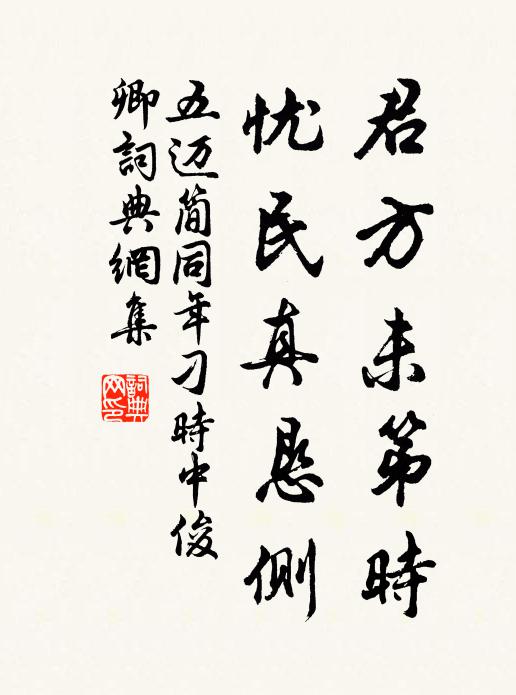 君方未第時
忧民真恳側
五迈簡同年刁時中俊
卿詞典網集
詞典
网印